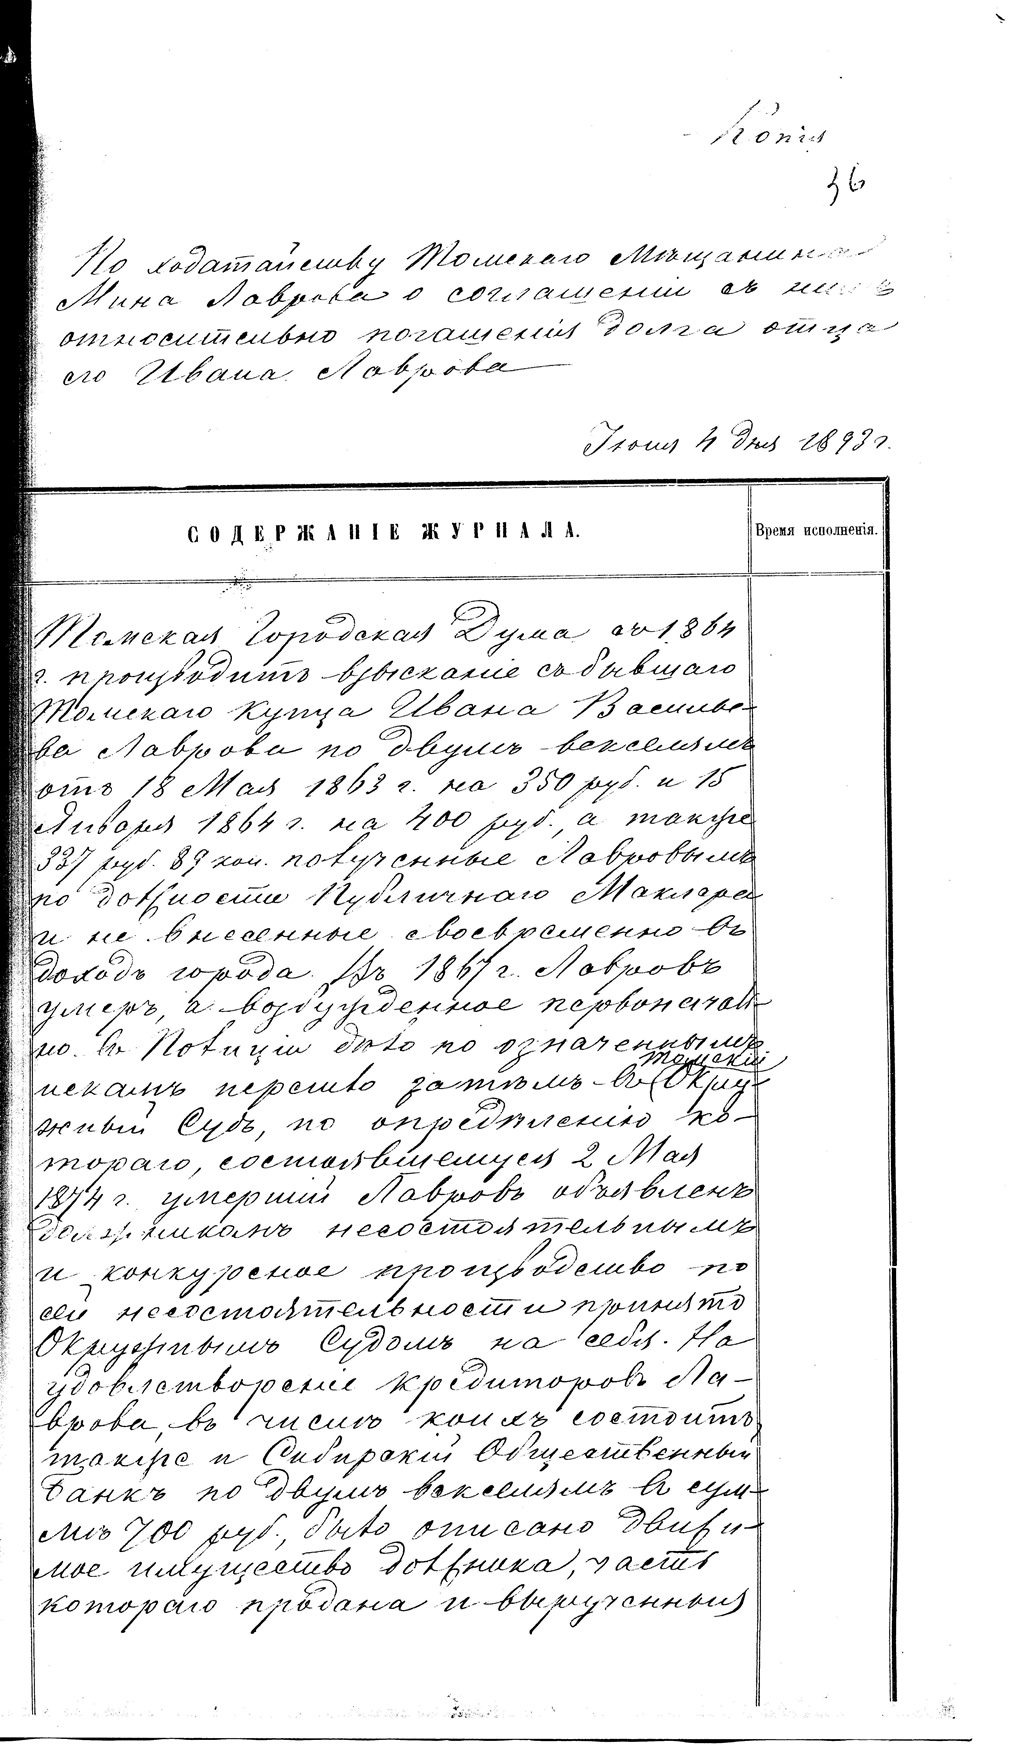 Копія
36
По ходатайству Томскаго Мѣщанина
Мина Лаврова о соглашеніи съ нимъ
относительно погашенія долга отца
его Ивана Лаврова
Іюня 4 дня 1893 г.
СОДЕРЖАНІЕ ЖУРНАЛА.
Время исполненія.
Томская Городская Дума съ 1864
г. производитъ взысканіе съ бывшаго
Томскаго купца Ивана Василье-
ва Лаврова по двумъ векселямъ
отъ 18 Мая 1863 г. на 350 руб. и 15
Января 1864 г. на 400 руб., а также
337 руб. 89 коп. полученные Лавровымъ
по должности Публичнаго Маклера
и не внесенные своевременно въ
доходъ города. Въ 1867 г. Лавровъ
умеръ, а возбужденное первоначаль-
но въ Полиціи дѣло по означеннымъ
искамъ перешло затѣмъ въ Томскій Окру-
жный Судъ, по опредѣленію ко-
тораго, состоявшемуся 2 Мая
1874 г. умершій Лавровъ объявленъ
должникомъ несостоятельнымъ
и конкурсное производство по
сей несостоятельности принято
Окружнымъ Судомъ на себя. На
удовлетвореніе кредиторовъ Ла-
врова, въ числѣ коихъ состоитъ
также и Сибирскій Общественный
Банкъ по двумъ векселямъ въ сум-
мѣ 700 руб., было описано движи-
мое имущество должника, часть
котораго продана и вырученныя